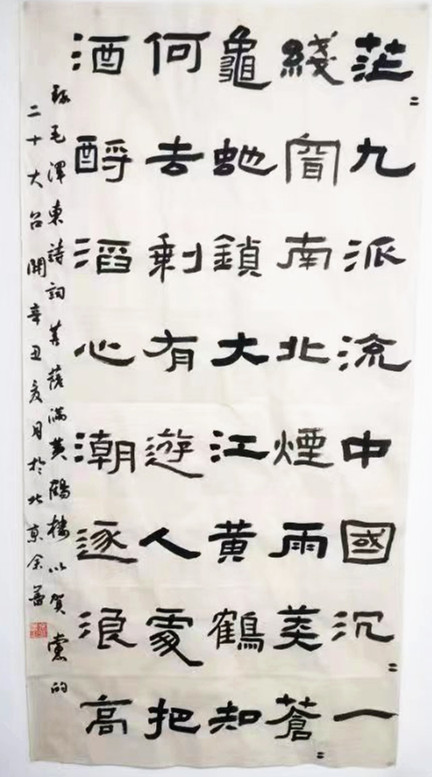 茫〻九派流中國沉〻一
綫南北煙雨莽蒼〻
龜虵鎖大江黃鶴知
何去剩有遊人處把
酒酹滔心潮逐浪高
毛澤東詩詞菩薩滿黃鶴樓以賀黨的
二十大召開辛丑夏月於北京余